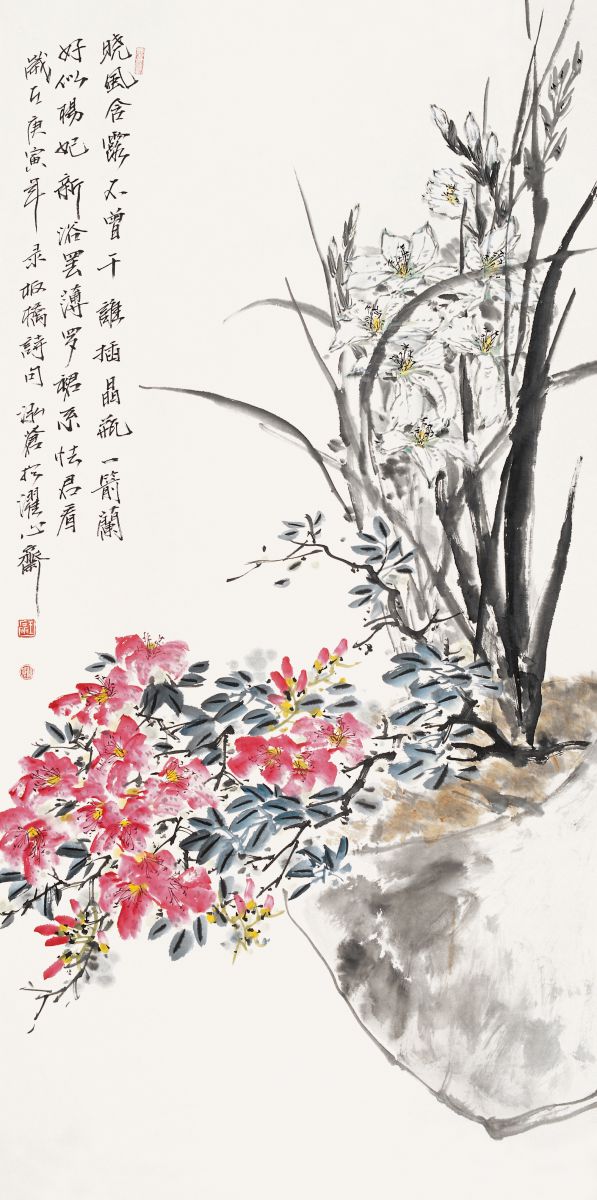 晓风含露不曾干誰插晶瓶一箭蘭
好似楊妃新浴罢薄罗裙系怯君看
歲在庚寅年录板橋詩句泓蒼於濯心齋